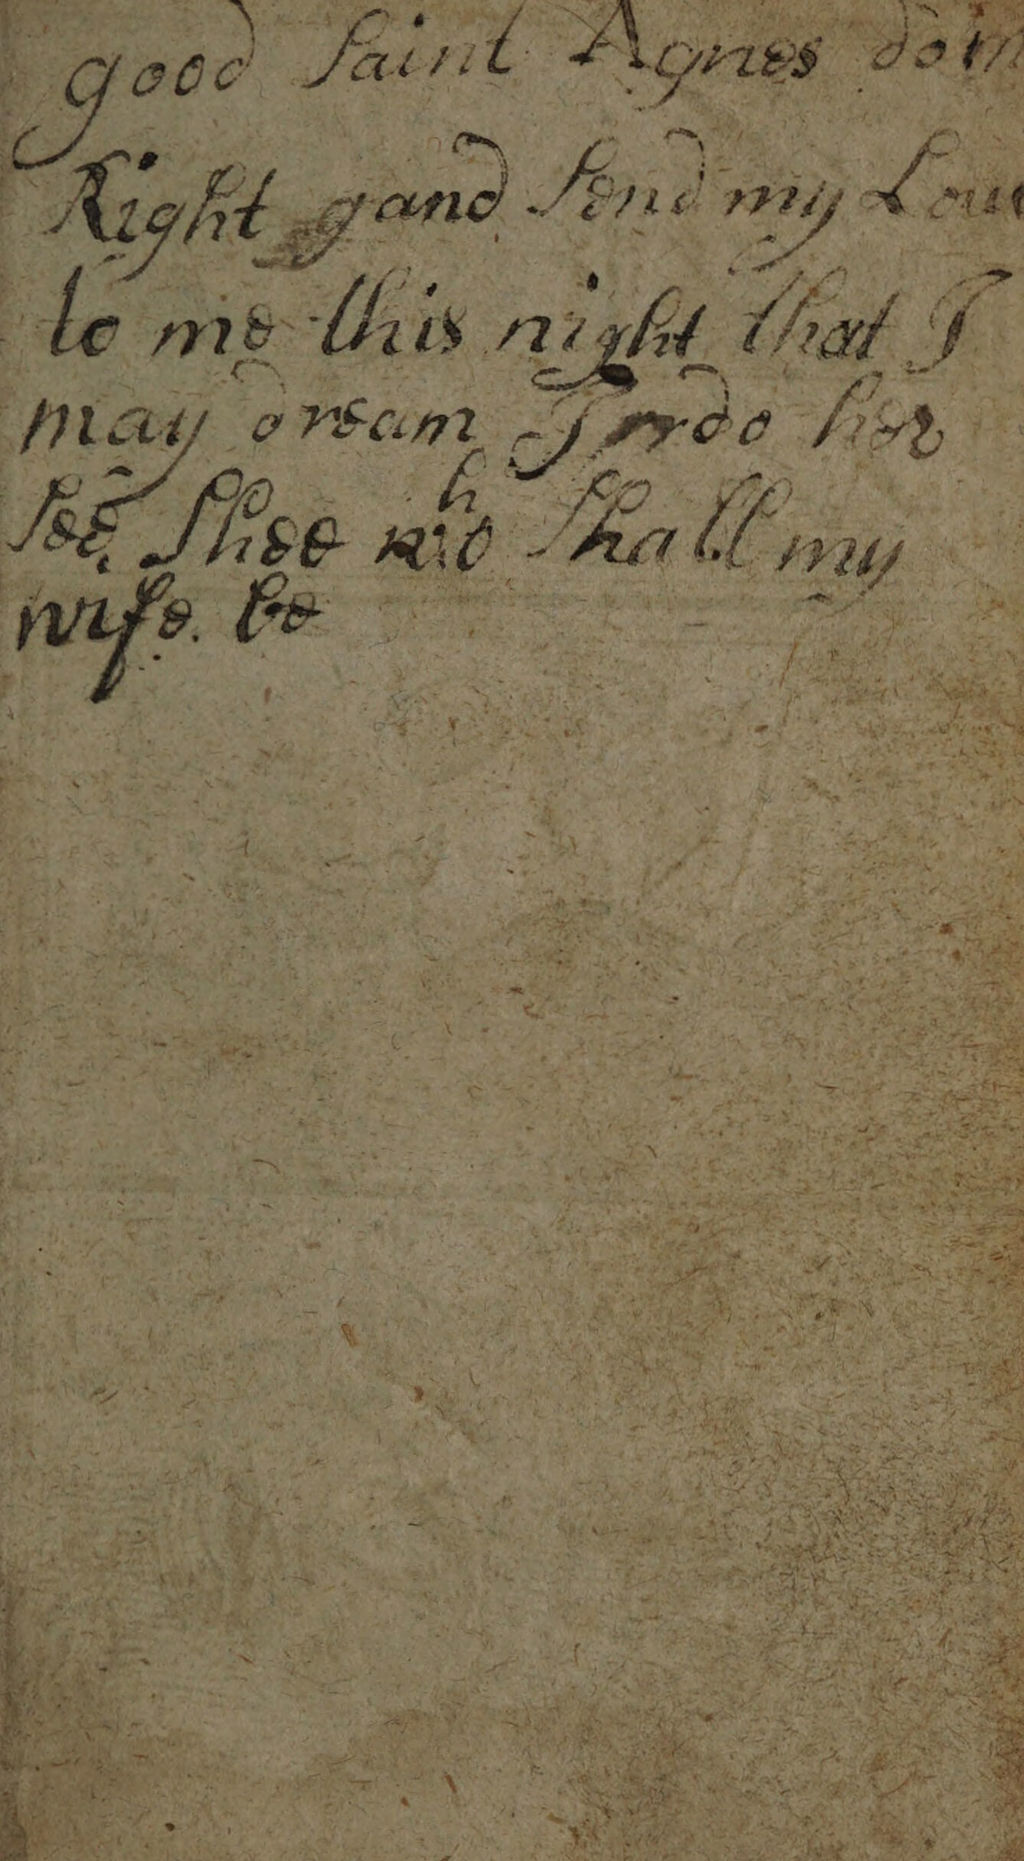 good Saint Agnes do m
Right gand Send my Loue
to me this night that I
may dream I do her
See Shee who Shall my
wife. be